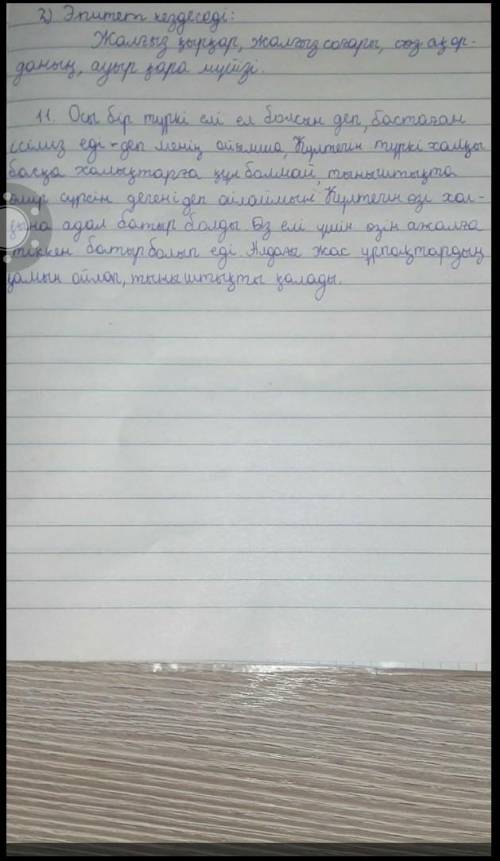 2) Эпитет кездеседі:
Жалғыз қырқар, жалғыз сағары, боз ақ ор-
даның, ауыр қара мүйізі.
11. Осы бір түркі елі ел болсын деп, бастаған
ісіміз еді - деп менің ойымша, Күлтегін түркі халқы
басқа халықтарға құл болмай тыныштықта
өмір сүрсін дегені деп ойлаймын. Күлтегін өзі хал-
қына адал батыр болды. Өз елі үшін өзін ажалға
тіккен батыр болып еді. Алдағы жас ұрпақтардың
қамын ойлап, тыныштықты қалады.